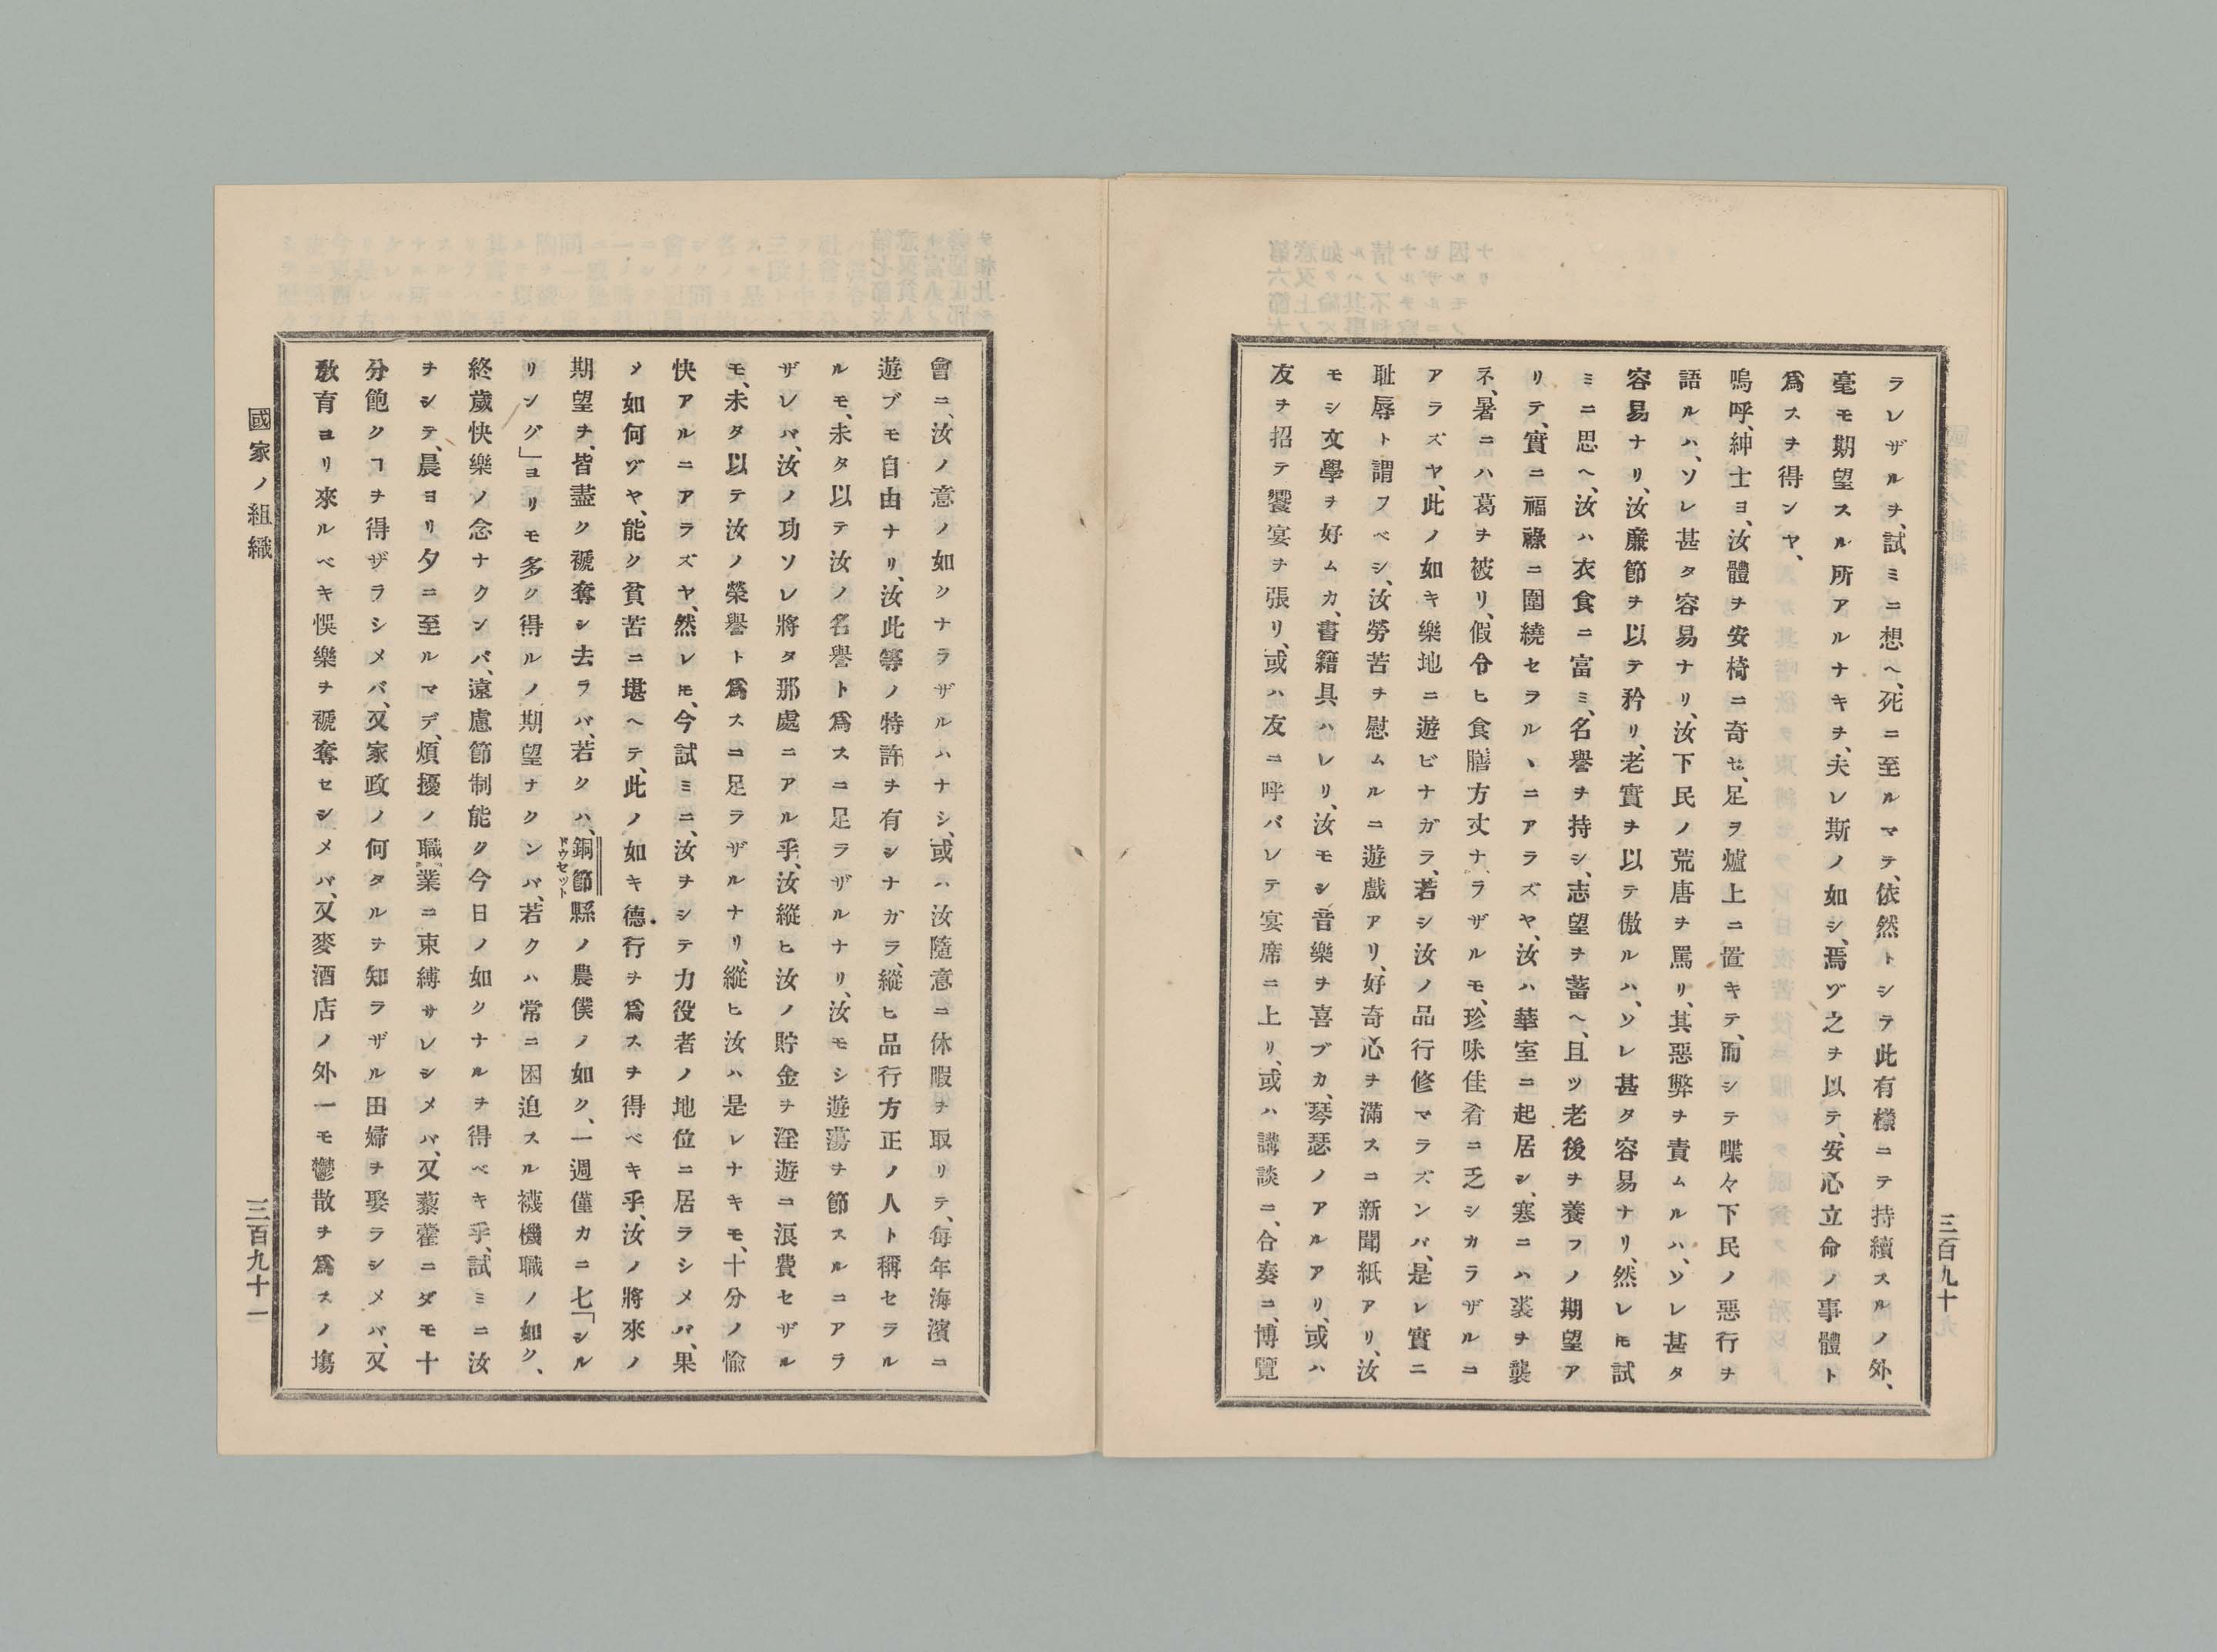 ラレザルヲ、試ミニ想ヘ、死ニ至ルマテ、依然トシラ此有樣ニテ持續スルノ外、
毫モ期望スル所アルナキヲ、夫レ斯ノ如シ、焉ゾ之ヲ以テ、安心立命ノ事體ト
爲スヲ得ンヤ、
嗚呼、紳士ヨ、汝體ヲ安椅ニ奇セ、足ヲ爐上ニ置キテ、而シテ喋々下民ノ惡行ヲ
語ルハ、ソレ甚タ容易ナリ、汝下民ノ荒唐ヲ罵リ、其惡弊ヲ責ムルハ、ソレ甚タ
容易ナリ、汝廉節ヲ以テ矜リ、老實ヲ以テ傲ルハ、ソレ甚タ容易ナリ、然レ𪜈試
ミニ思ヘ、汝ハ衣食ニ富ミ、名譽ヲ持シ、志望ヲ蓄ヘ、且ツ老後ヲ養フノ期望ア
リテ、實ニ福祿ニ圍繞セラルヽニアラズヤ、汝ハ華室ニ起居シ、寒ニハ裘ヲ襲
子、暑ニハ葛ヲ被リ、假令ヒ食膳方丈ナラザルモ、珍味佳肴ニ乏シカラザルヿ
アラズヤ、此ノ如キ樂地ニ遊ビナガラ、若シ汝ノ品行修マラズンバ、是レ實ニ
耻辱ト謂フベシ、汝勞苦ヲ慰ムルニ遊戲アリ、好奇心ヲ滿スニ新聞紙アリ、汝
モシ文學ヲ好ムカ、書籍具ハレリ、汝モシ音樂ヲ喜ブカ、琴瑟ノアルアリ、或ハ
友ヲ招テ饗宴ヲ張リ、或ハ友ニ呼バレテ宴席ニ上リ、或ハ講談ニ、合奏ニ、博覽
三百九十
會ニ、汝ノ意ノ如クナラザルハナシ、或ハ汝隨意ニ休暇ヲ取リテ、每年海濱ニ
遊ブモ自由ナリ、汝此等ノ特許ヲ有シナガラ、縱ヒ品行方正ノ人ト稱セラル
ルモ、未タ以テ汝ノ名譽ト爲スニ足ラザルナリ、汝モシ遊蕩ヲ節スルニアラ
ザレバ、汝ノ功ソレ將タ那處ニアル乎、汝縱ヒ汝ノ貯金ヲ淫遊ニ浪費セザル
モ、未タ以テ汝ノ榮譽ト爲スニ足ラザルナリ、縱ヒ汝ハ是レナキモ、十分ノ愉
快アルニアラズヤ、然レ𪜈、今試ミニ、汝ヲシテ力役者ノ地位ニ居ラシメバ、果
メ如何ゾヤ、能ク貧苦ニ堪ヘテ、此ノ如キ德行ヲ爲スヲ得ベキ乎、汝ノ將來ノ
期望ヲ、皆盡ク褫奪シ去ラバ、若クハ、銅節縣ノ農僕ノ如ク、一週僅カニ七「シル
ドウセット
リング」ヨリモ多ク得ルノ期望ナクンバ、若クハ常ニ困迫スル襪機職ノ如ク、
終歲快樂ノ念ナクンバ、遠慮節制能ク今日ノ如クナルヲ得ベキ乎、試ミニ汝
ヲシテ、晨ヨリ夕ニ至ルマデ、煩擾ノ職業ニ束縛サレシメバ、又藜藿ニダモ十
分飽クヿヲ得ザラシメバ、又家政ノ何タルヲ知ラザル田婦ヲ娶ラシメバ、又
敎育ヨリ來ルベキ悞樂ヲ褫奪セシメバ、又麥酒店ノ外一モ鬱散ヲ爲スノ塲
國家ノ組織
三百九十一